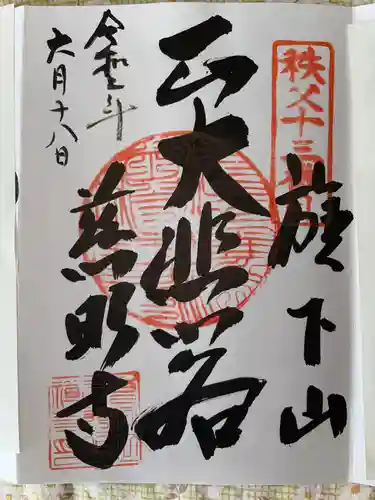 秩父十三番
旗下山
正大悲者
慈眼寺
令和三年
六月十八日